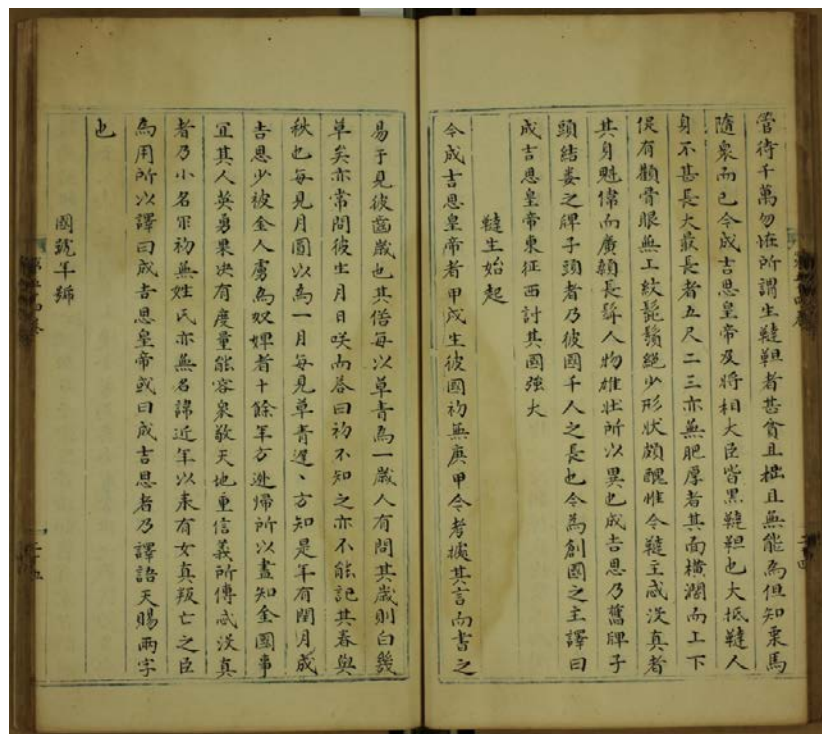 管待千萬勿沲所謂生韃靼者甚貧且拙且無能為但知乗馬
隨衆而已今成吉思皇帝及將相大臣皆黑韃靼也大抵韃人
身不甚長大最長者五尺二三亦無肥厚者其面橫濶而上下
促有顴骨眼無上紋髭鬚絕少形狀頗醜惟今韃主忒沒真者
其身魁偉而廣顙長髯人物雄壯所以異也成吉思乃舊牌子
頭結婁之牌子頭者乃彼國千人之長也今為創國之主譯曰
成吉思皇帝東征西討其國強大
韃生始起
今成吉思皇帝者甲戌生彼國初無庚甲今考據其言而書之
易于見彼齒歲也其俗每以草青為一歲人有問其歲則曰幾
草矣亦常問彼生月日咲而答曰初不知之亦不能記其春與
秋也每見月圓以為一月每見草青遲丶方知是年有閏月成
吉思少被金人虜為奴婢者十餘年方逃歸所以盡知金國事
宜其人英勇果决有度量能容衆敬天地重信義所傳忒沒真
者乃小名尔初無姓氏亦無名諱近年以来有女真叛亡之臣
為用所以譯曰成吉思皇帝或曰成吉思者乃譯語天賜兩字
也
國號年號